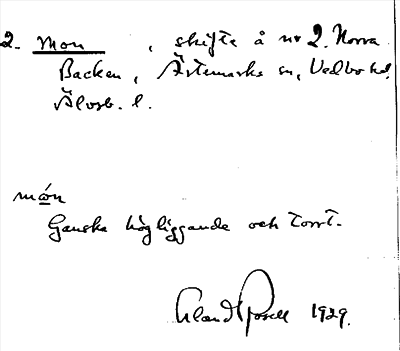 2. Mon , skifte å nr 2. Norra
Backen, Ärtemarks sn, Vedbo hd,
Älvsb. l.
món
Ganska högliggande och torrt.
1929.